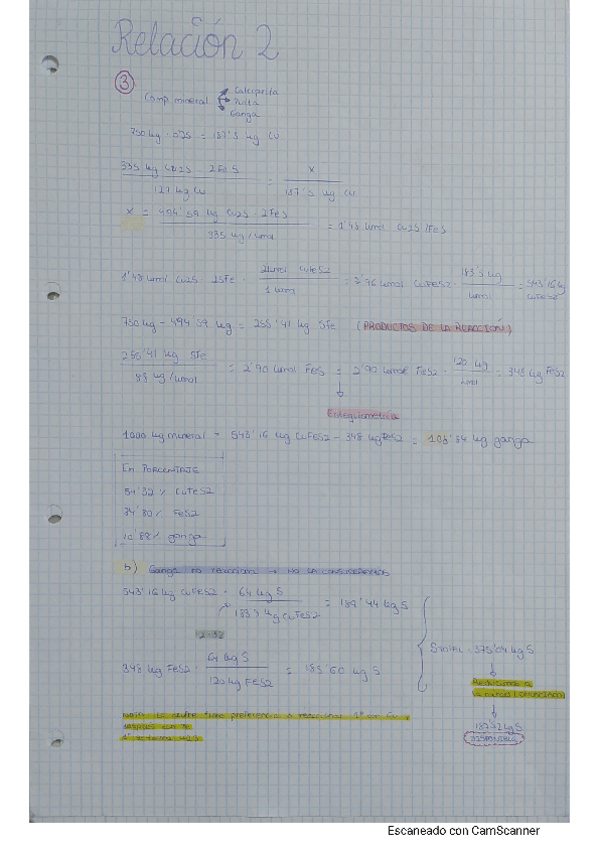 Relación 2
③
Comp mineral Calcopirita
Pirita
Ganga
750 kg · 0'25 = 187'5 kg Cu
335 kg Cu2S · 2FeS / 127 kg Cu = x / 187'5 kg Cu
x = 494'59 kg Cu2S · 2FeS / 335 kg/kmol = 1'48 kmol Cu2S 2FeS
1'48 kmol Cu2S · 2SFe · 2kmol CuFeS2 / 1 kmol = 2'96 kmol CuFeS2 · 183'5 kg / kmol = 543'16 kg CuFeS2
750 kg - 494'59 kg = 255'41 kg SFe (PRODUCTOS DE LA REACCIÓN)
255'41 kg SFe / 88 kg/kmol = 2'90 kmol FeS = 2'90 kmol FeS2 · 120 kg / kmol = 348 kg FeS2
Estequiometría
1000 kg mineral - 543'16 kg CuFeS2 - 348 kg FeS2 = 108'84 kg ganga
En PORCENTAJE
54'32 % CuFeS2
34'80 % FeS2
10'88 % ganga
b) Ganga no reacciona → NO LA CONSIDERAMOS
543'16 kg CuFeS2 · 64 kg S / 183'5 kg CuFeS2 = 189'44 kg S
2·32
348 kg FeS2 · 64 kg S / 120 kg FeS2 = 185'60 kg S
STOTAL = 375'04 kg S
Reducimos a
la mitad
187'52 kg S
DISPONIBLE
Nota: El azufre tiene preferencia a reaccionar 1º con Cu,
después con Fe
1º se forma
Escaneado con CamScanner